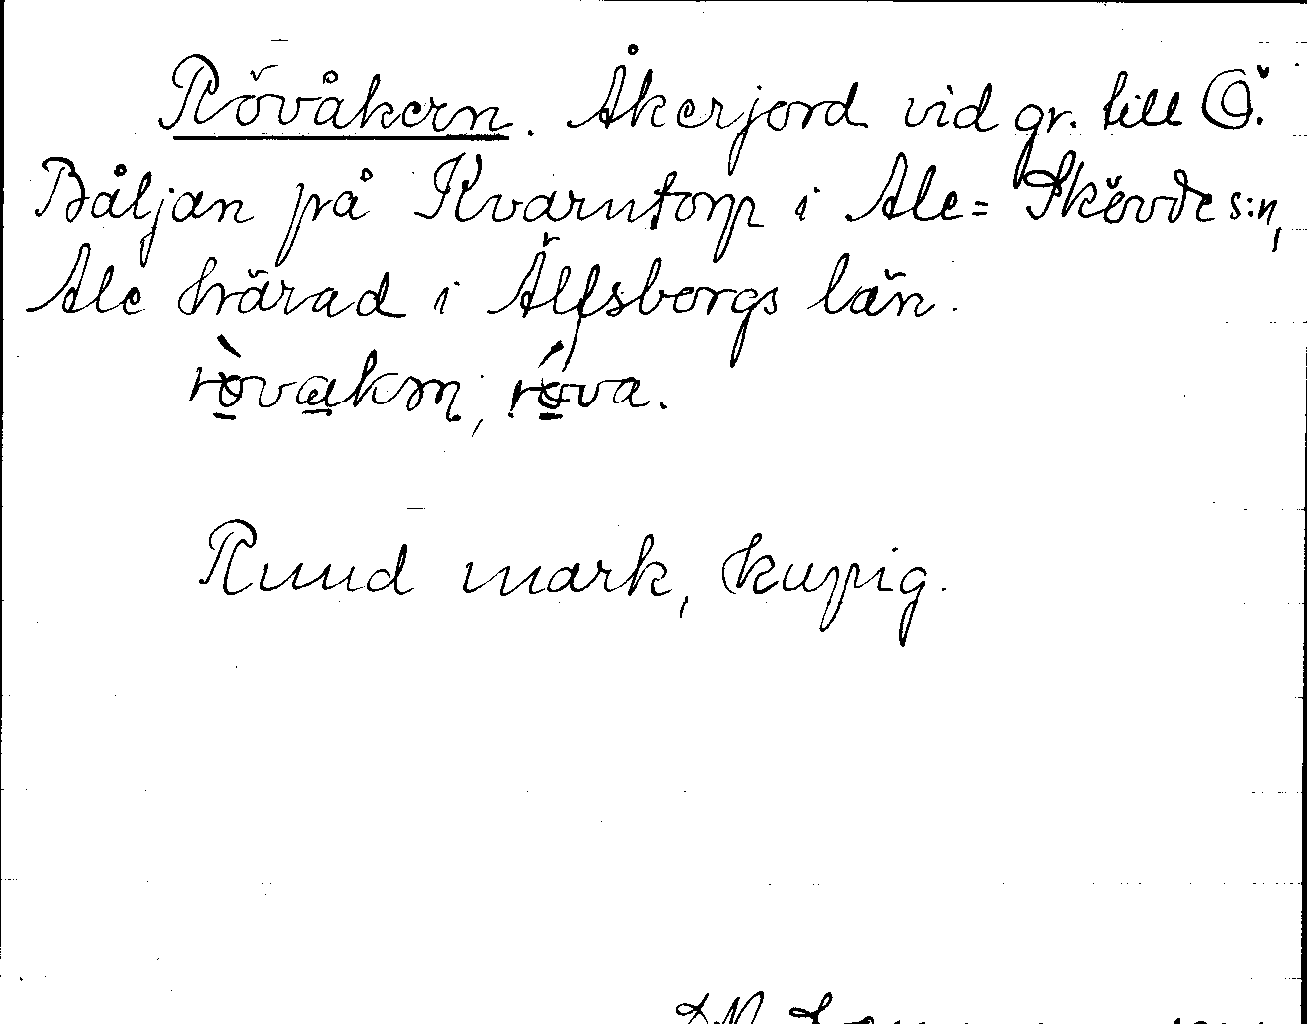 Rövåkern. Åkerjord vid gr. till Ö.
Båljan på Kvarntorp i Ale= Skövde s:n,
Ale härad i Älfsborgs län.
rövakɷn, röva.
Rund mark, kupig.